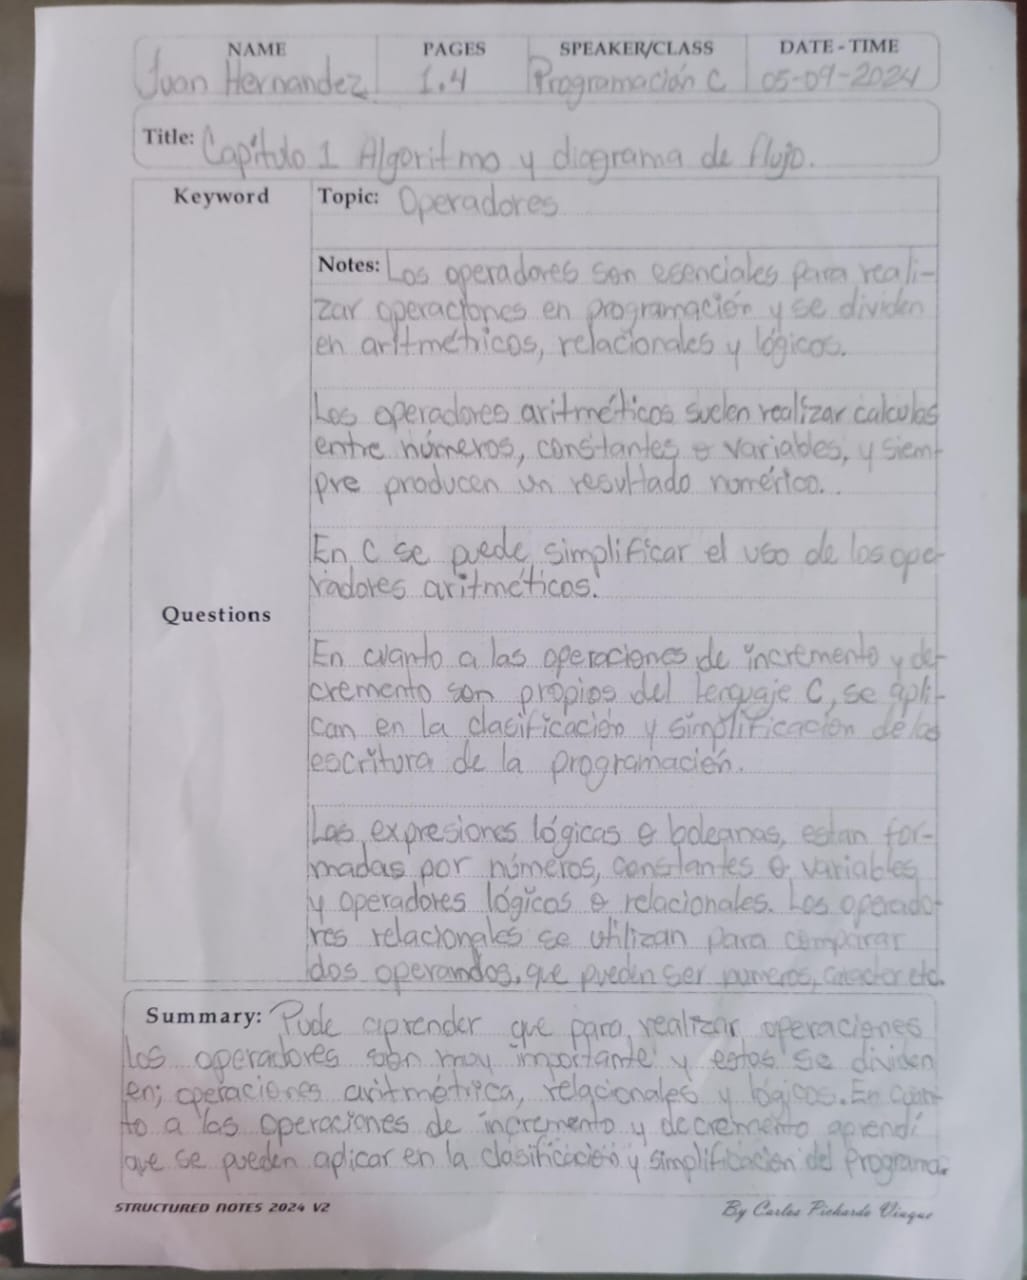 NAME PAGES SPEAKER/CLASS DATE - TIME
Juan Hernandez 1.4 Programación C 05-09-2024
Title: Capítulo 1 Algoritmo y diagrama de flujo.
Keyword Topic: Operadores
Notes: Los operadores son esenciales para reali-
zar operaciones en programación y se dividen
en aritmétricos, relacionales y lógicos.
Los operadores aritméticos suelen realizar calculos
entre números, constantes o variables, y siem-
pre producen un resultado numérico..
En C se puede simplificar el uso de los ope-
radores aritméticos.
Questions
En cuanto a las operaciones de incremento y de-
cremento son propios del lenguaje C, se apli-
can en la clasificación y simplificación de las
escritura de la programación.
Las expresiones lógicas o boleanas, estan for-
madas por números, constantes o variables
y operadores lógicos o relacionales. Los operado-
res relacionales se utilizan para comparar
dos operandos, que pueden ser numeros, caracter etc.
Summary: Pude aprender que para realizar operaciones
los operadores son muy importante y estos se dividen
en; operaciones aritmétrica, relacionales y lógicos. En cuan-
to a las operaciones de incremento y decremento aprendí
que se pueden aplicar en la clasificación y simplificación del programa.
STRUCTURED NOTES 2024 V2 By Carlos Pichardo Viuque